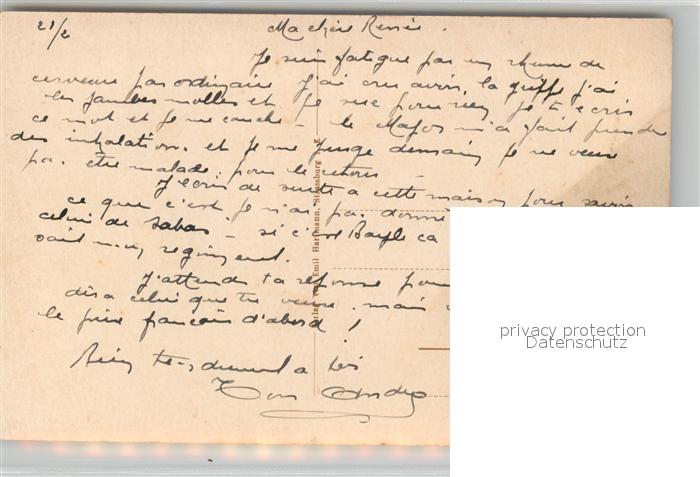 21/2 Ma chère Renée.
Je suis fatigué par un rhume de
cerveau pas ordinaire J'ai cru avoir la grippe j'ai
les jambes molles et je sue pour rien je t'écris
ce mot et je me couche - le Major m'a fait prendre
des inhalations. et je me purge demain je ne veux
pas être malade pour le retour -
J'écris de suite a cette maison pour savoir
ce que c'est je n'ai pas donné
celui de - si c'est Bayle ca
sait mon regiment.
J'attends ta reponse pour
dira celui que tu veux. mais
le français d'abord !
Bien tendrement a toi
Ton André
Verlag von Emil Hartmann, Strassburg
privacy protection
Datenschutz